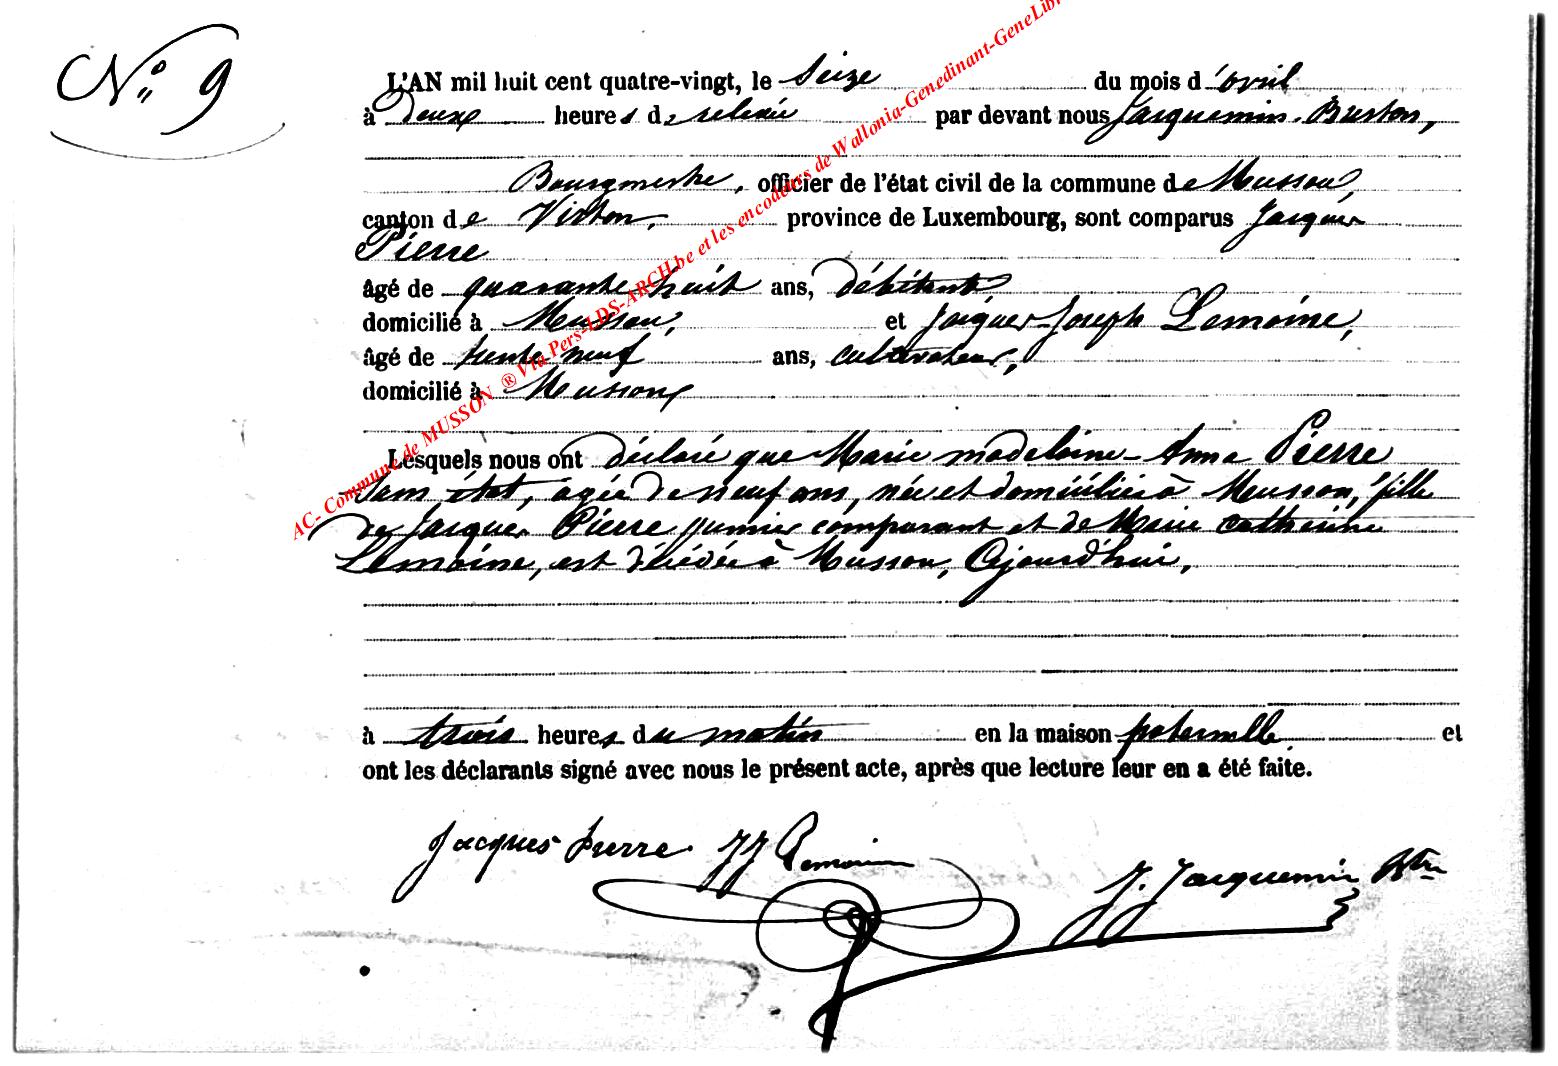 N° 9
L'AN mil huit cent quatre-vingt, le Seize du mois d'avril
à Deux heures de relevée par devant nous Jacquemin-Burton,
Bourgmestre, officier de l'état civil de la commune de Musson,
canton de Virton, province de Luxembourg, sont comparus Jacques
Pierre
âgé de quarante huit ans, débitant
domicilié à Musson, et Jacques-Joseph Lemoine,
âgé de trente neuf ans, cultivateur,
domicilié à Musson
Lesquels nous ont déclaré que Marie madelaine-Anna Pierre
sans état, agée de neuf ans, née et domiciliée à Musson, fille
de Jacques Pierre premier comparant et de Marie catherine
Lemoine, est décédée à Musson, Ajourd'hui,
à trois heures du matin en la maison paternelle et
ont les déclarants signé avec nous le présent acte, après que lecture leur en a été faite.
Jacques Pierre JJ Lemoine J. Jacquemin
AC- Commune de MUSSON ® Via Pers-LDS-ARCH.be et les encodeurs de Wallonia-Genedinant-GeneLib